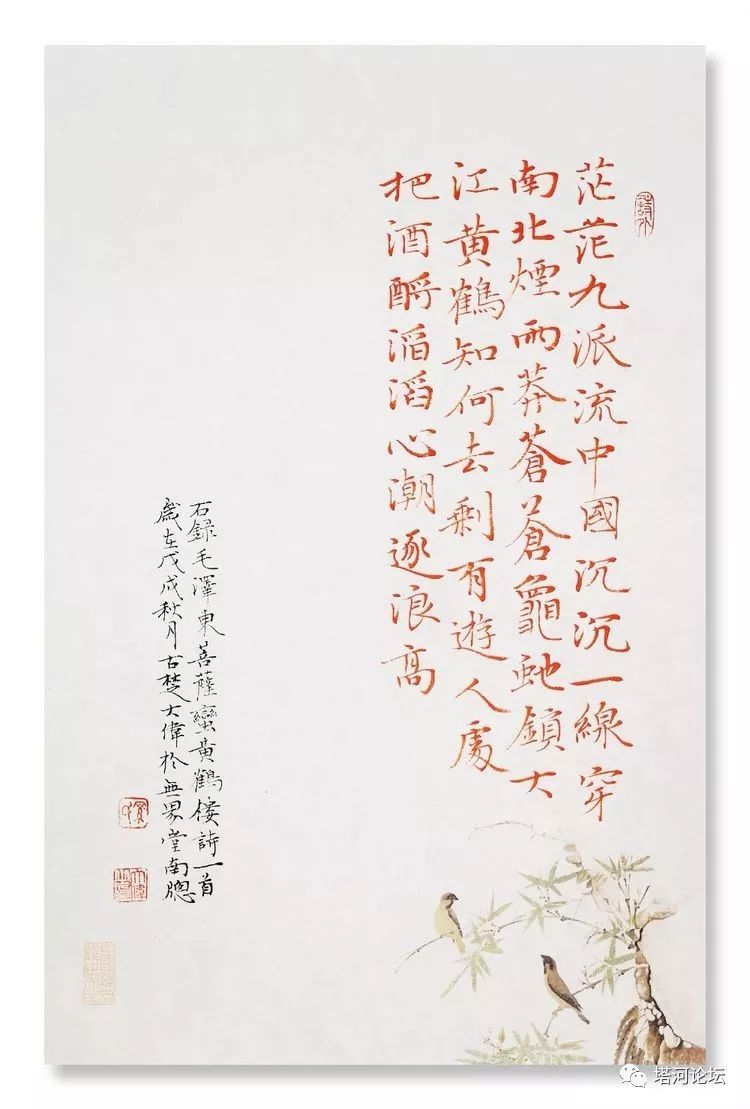 茫茫九派流中國沉沉一線穿
南北煙雨莽蒼蒼龜虵鎖大
江黄鶴知何去剩有遊人處
把酒酹滔滔心潮逐浪高
右録毛澤東菩薩蠻黄鶴楼詩一首
歲在戊戌秋月古楚大偉於無界堂南牕
塔河论坛